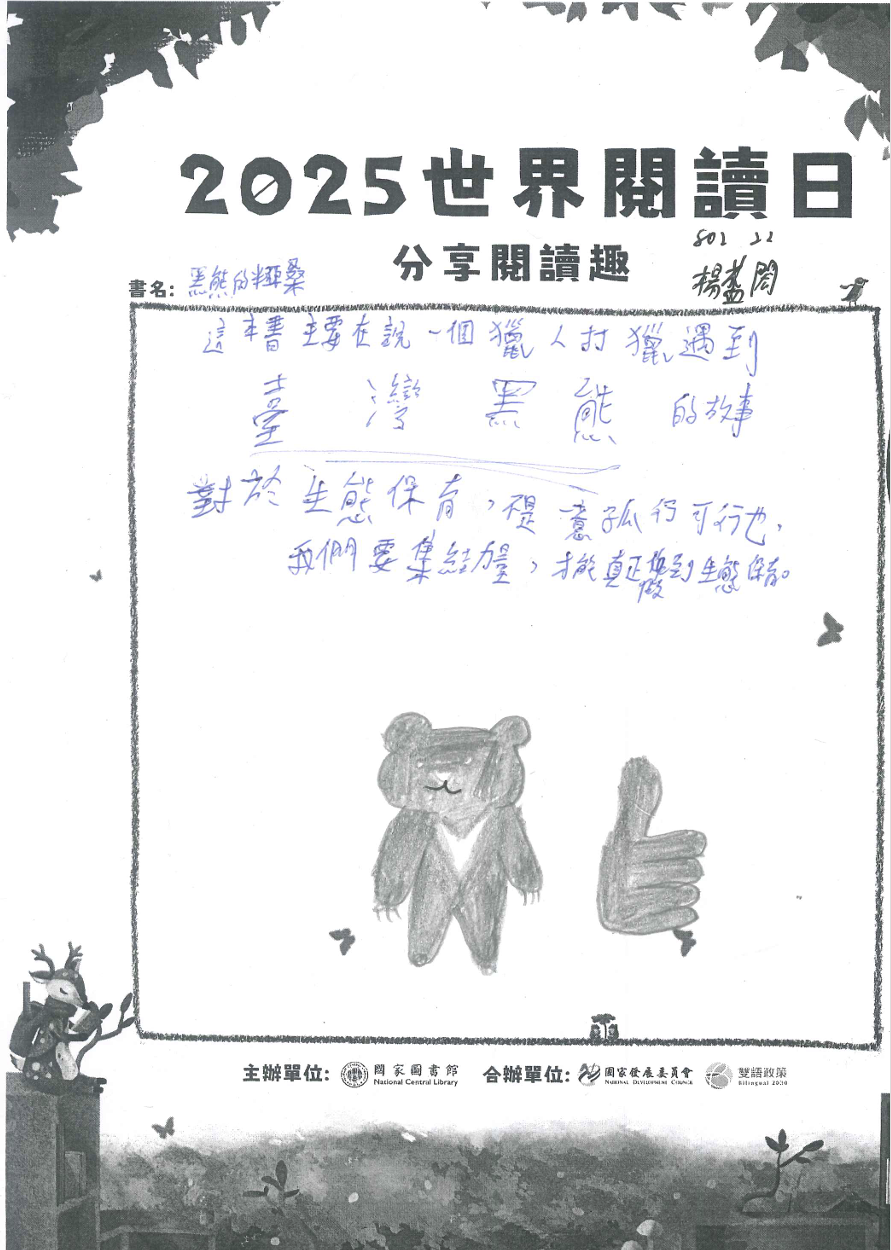 2025世界閱讀日
分享閱讀趣
802 22
書名: 黑熊的米桑
楊
這本書主要在說一個獵人打獵遇到
臺灣黑熊的故事
對於生態保育,不是一意孤行可行也,
我們要集結力量,才能真正做到生態保育。
主辦單位: 國家圖書館 National Central Library 合辦單位: 國家發展委員會 National Development Council 雙語政策 Bilingual 2030